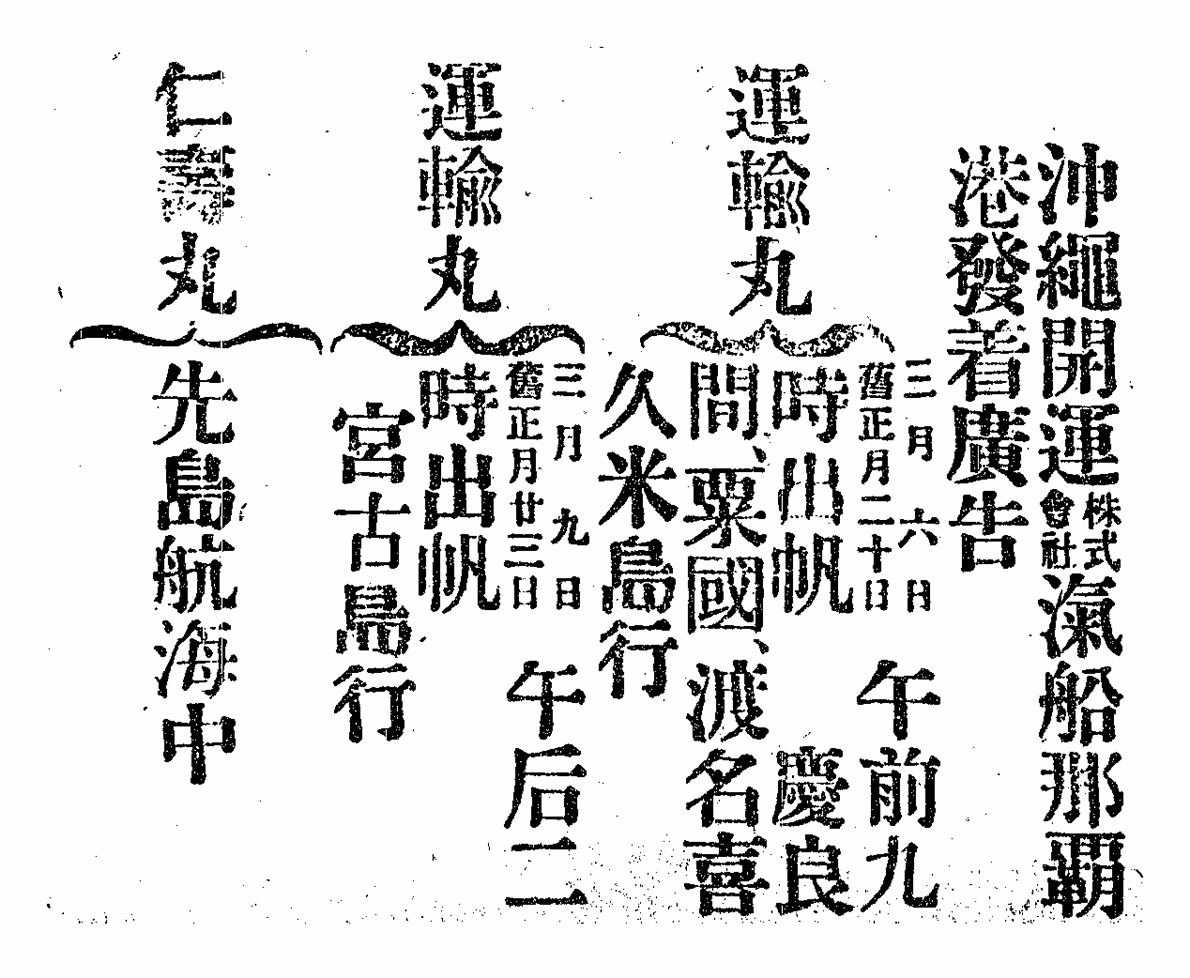 沖繩開運株式會社滊船那覇
港發着廣告
運輸丸
三月六日
舊正月二十日
午前九
時出帆 慶良
間、粟國、渡名喜
久米島行
運輸丸
三月九日
舊正月廿三日
午后二
時出帆
宮古島行
仁壽丸
先島航海中